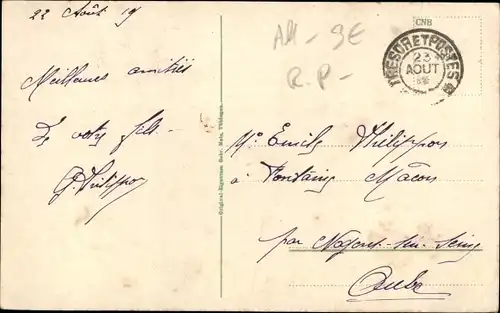 22 Août 19
Meilleures amitiés
De votre fils
G. Philippon
Original-Eigentum Gebr. Metz, Tübingen
CNB
AM - 9E
R.P -
TRESOR ET POSTES
23
AOUT
Mr Emile Philippon
à Fontaine Mâcon
par Nogent-sur-Seine
Aube